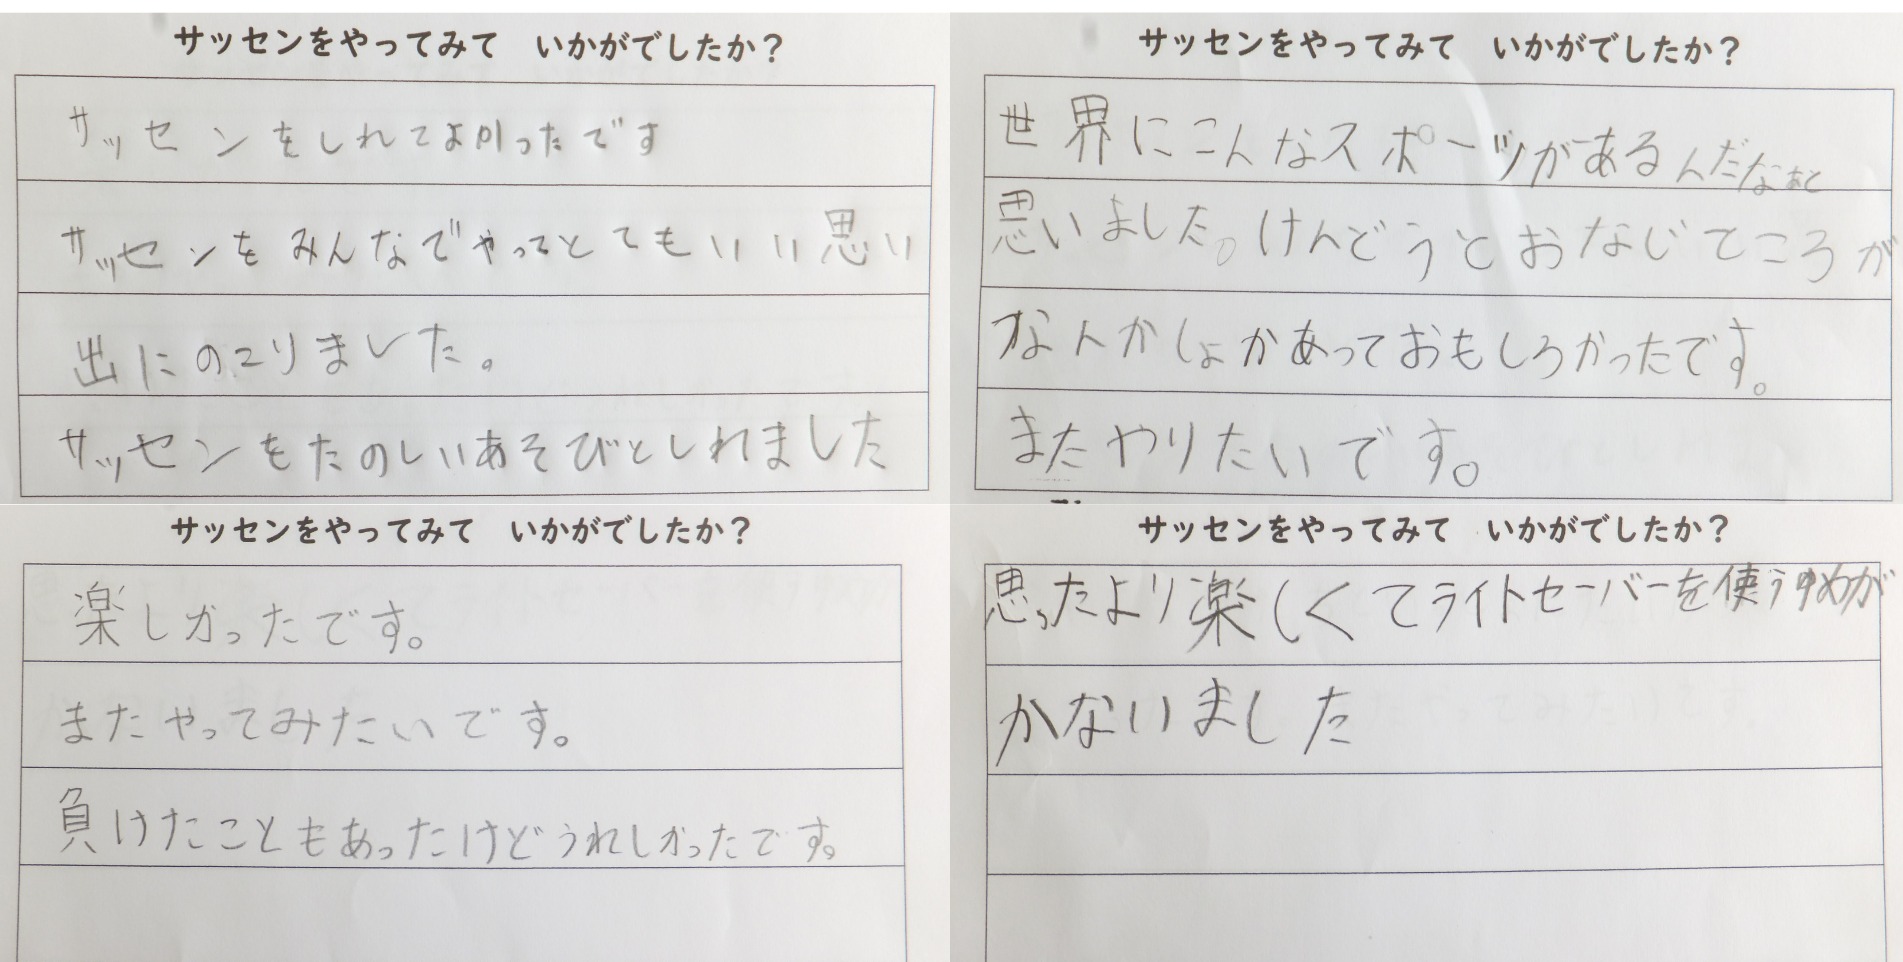 サッセンをやってみて いかがでしたか？
サッセンをしれてよかったです
サッセンをみんなでやってとてもいい思い
出にのこりました。
サッセンをたのしいあそびとしれました
サッセンをやってみて いかがでしたか？
世界にこんなスポーツがあるんだなぁと
思いました。けんどうとおなじところが
なんかしょかあっておもしろかったです。
またやりたいです。
サッセンをやってみて いかがでしたか？
楽しかったです。
またやってみたいです。
負けたこともあったけどうれしかったです。
サッセンをやってみて いかがでしたか？
思ったより楽しくてライトセーバーを使うゆめが
かないました